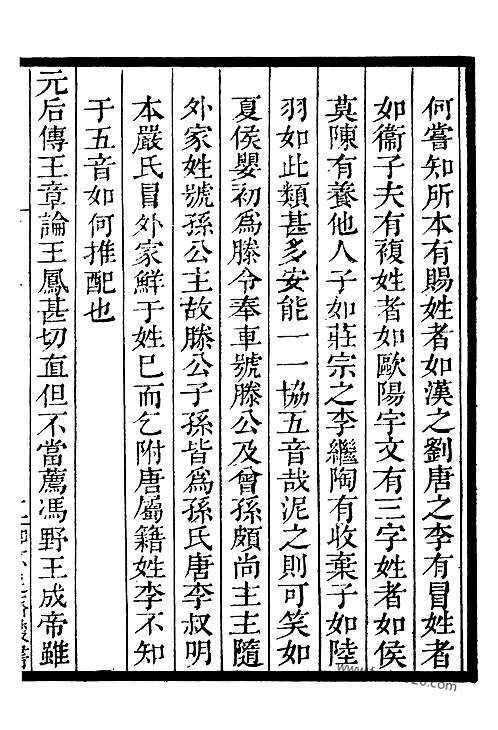 何嘗知所本有賜姓者如漢之劉唐之李有冒姓者
如衞子夫有複姓者如歐陽宇文有三字姓者如侯
莫陳有養他人子如莊宗之李繼陶有收棄子如陸
羽如此類甚多安能一一協五音哉泥之則可笑如
夏侯嬰初爲滕令奉車號滕公及曾孫頗尚主主隨
外家姓號孫公主故滕公子孫皆爲孫氏唐李叔明
本嚴氏冒外家鮮于姓已而乞附唐屬籍姓李不知
于五音如何推配也
元后傳王章論王鳳甚切直但不當薦馮野王成帝雖